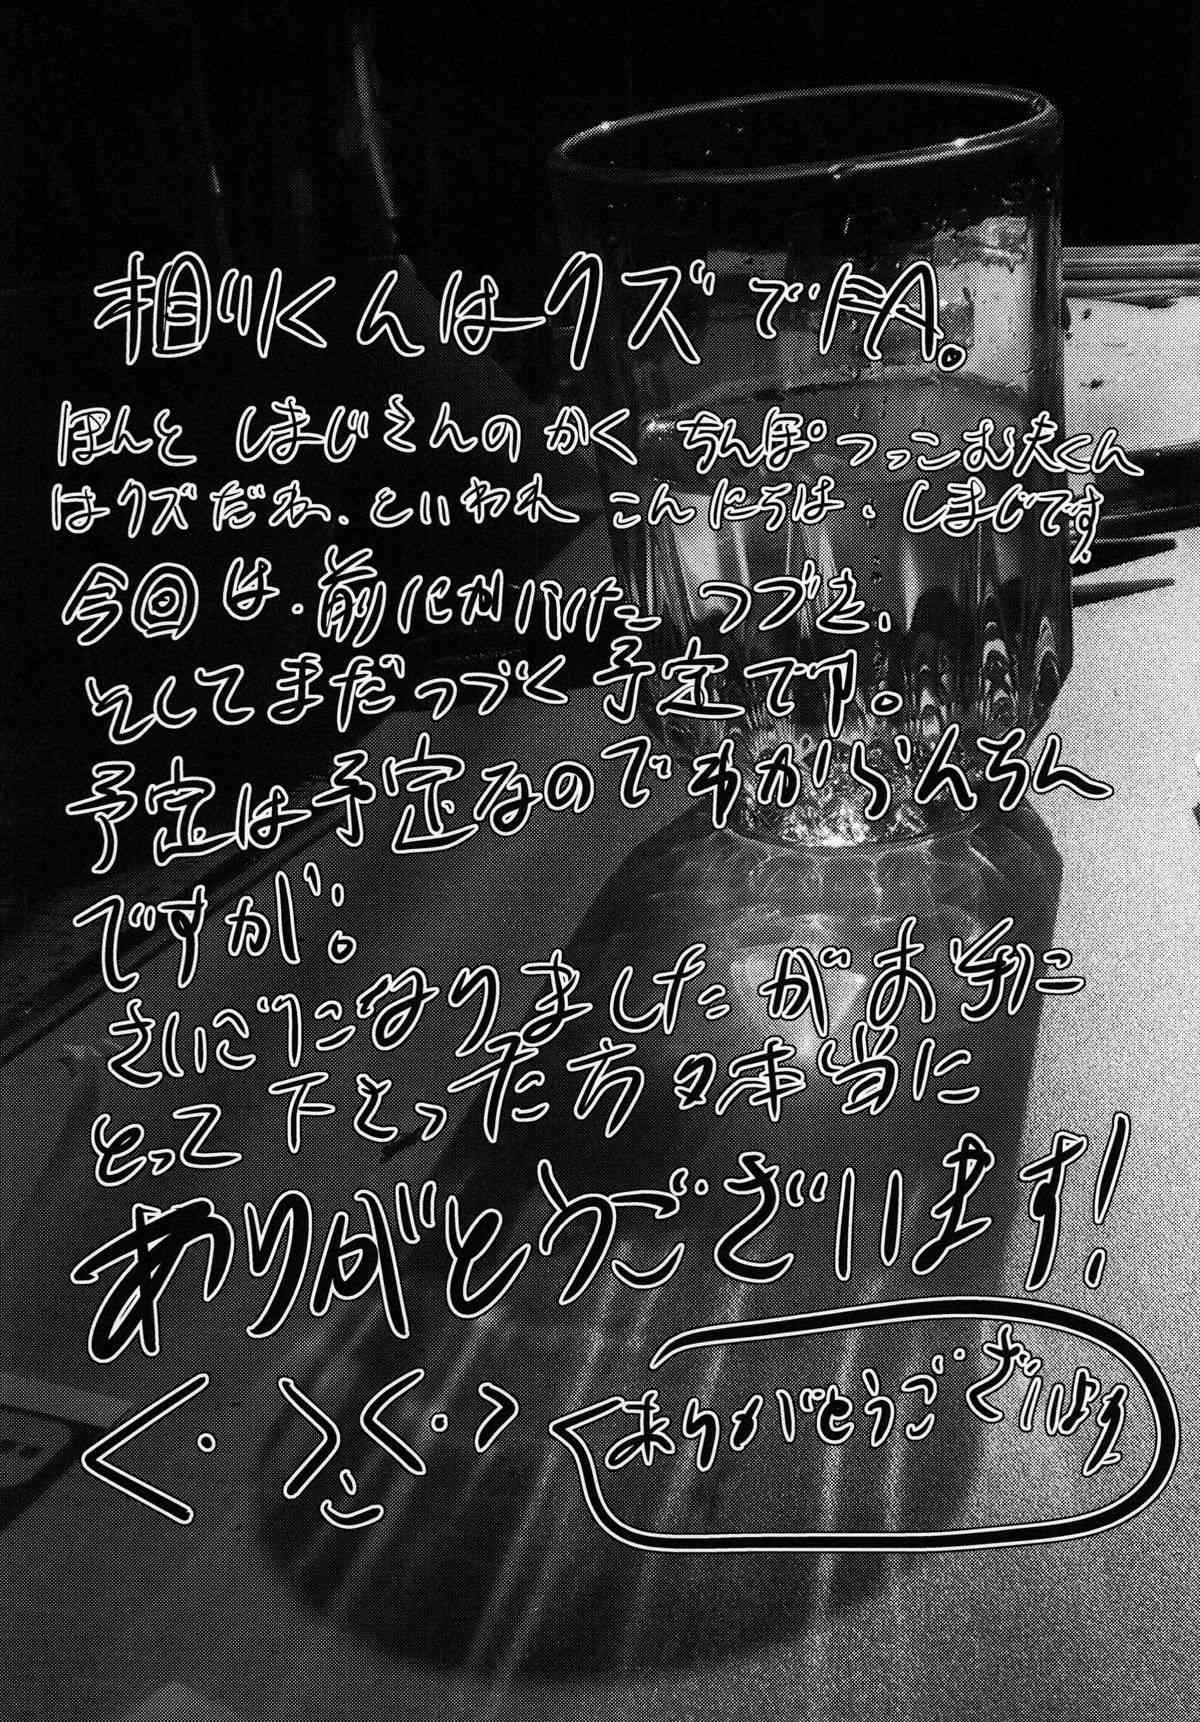 相川くんはクズでFA。
ほんと しまじさんのかく ちんぽつっこむ夫くん
はクズだね、といわれ こんにちは、しまじです。
今回は、前にかいた つづき、
そしてまだつづく予定です。
予定は予定なのでわからんちん
ですが。
さいごりになりましたがお手に
とって下さった方々本当に
ありがとうございます!
ありがとうございます